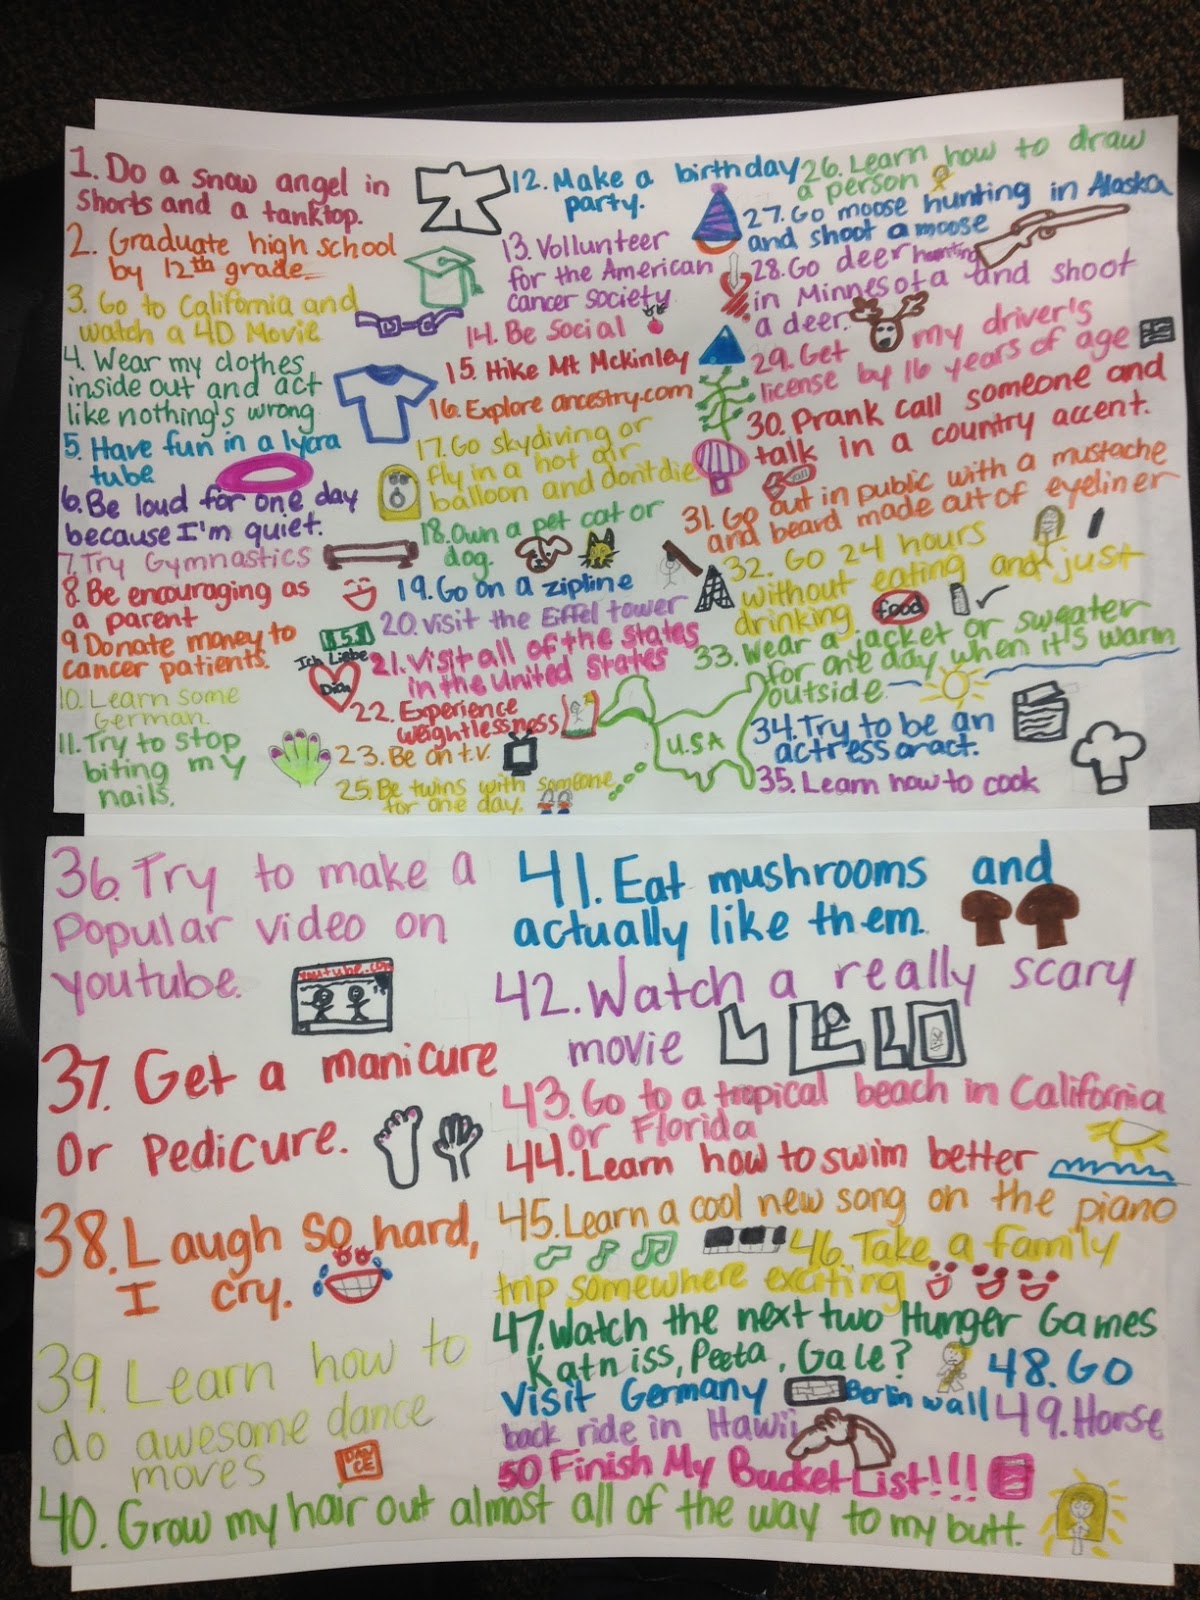 1. Do a snow angel in
shorts and a tanktop.
2. Graduate high school
by 12th grade
3. Go to California and
watch a 4D Movie
4. Wear my clothes
inside out and act
like nothing's wrong
5. Have fun in a lycra
tube
6. Be loud for one day
because I'm quiet.
7. Try Gymnastics
8. Be encouraging as
a parent
9 Donate money to
cancer patients.
10. Learn some
German.
Ich Liebe
Dich
11. Try to stop
biting my
nails.
12. Make a birthday
party.
13. Vollunteer
for the American
cancer society
14. Be Social
15. Hike Mt Mckinley
16. Explore ancestry.com
17. Go skydiving or
fly in a hot air
balloon and don't die
18. Own a pet cat or
dog.
19. Go on a zipline
20. visit the Eiffel tower
21. Visit all of the states
in the United States
22. Experience
weightlessness
23. Be on t.v.
25. Be twins with someone
for one day.
U.S.A
26. Learn how to draw
a person
27. Go moose hunting in Alaska
and shoot a moose
28. Go deer hunting
in Minnesota and shoot
a deer.
29. Get my driver's
license by 16 years of age
30. Prank call someone and
talk in a country accent.
31. Go out in public with a mustache
and beard made out of eyeliner
32. Go 24 hours
without eating and just
drinking
food
33. Wear a jacket or sweater
for one day when it's warm
outside
34. Try to be an
actress or act.
35. Learn how to cook
36. Try to make a
Popular video on
youtube.
youtube.com
37. Get a manicure
Or Pedicure.
38. Laugh so hard,
I cry.
39. Learn how to
do awesome dance
moves
DAN
CE
40. Grow my hair out almost all of the way to my butt.
41. Eat mushrooms and
actually like them.
42. Watch a really scary
movie
43. Go to a tropical beach in California
or Florida
44. Learn how to swim better
45. Learn a cool new song on the piano
46. Take a family
trip somewhere exciting
47. Watch the next two Hunger Games
Katniss, Peeta, Gale?
48. Go
Visit Germany Berlin wall
49. Horse
back ride in Hawii
50 Finish My Bucket List!!!